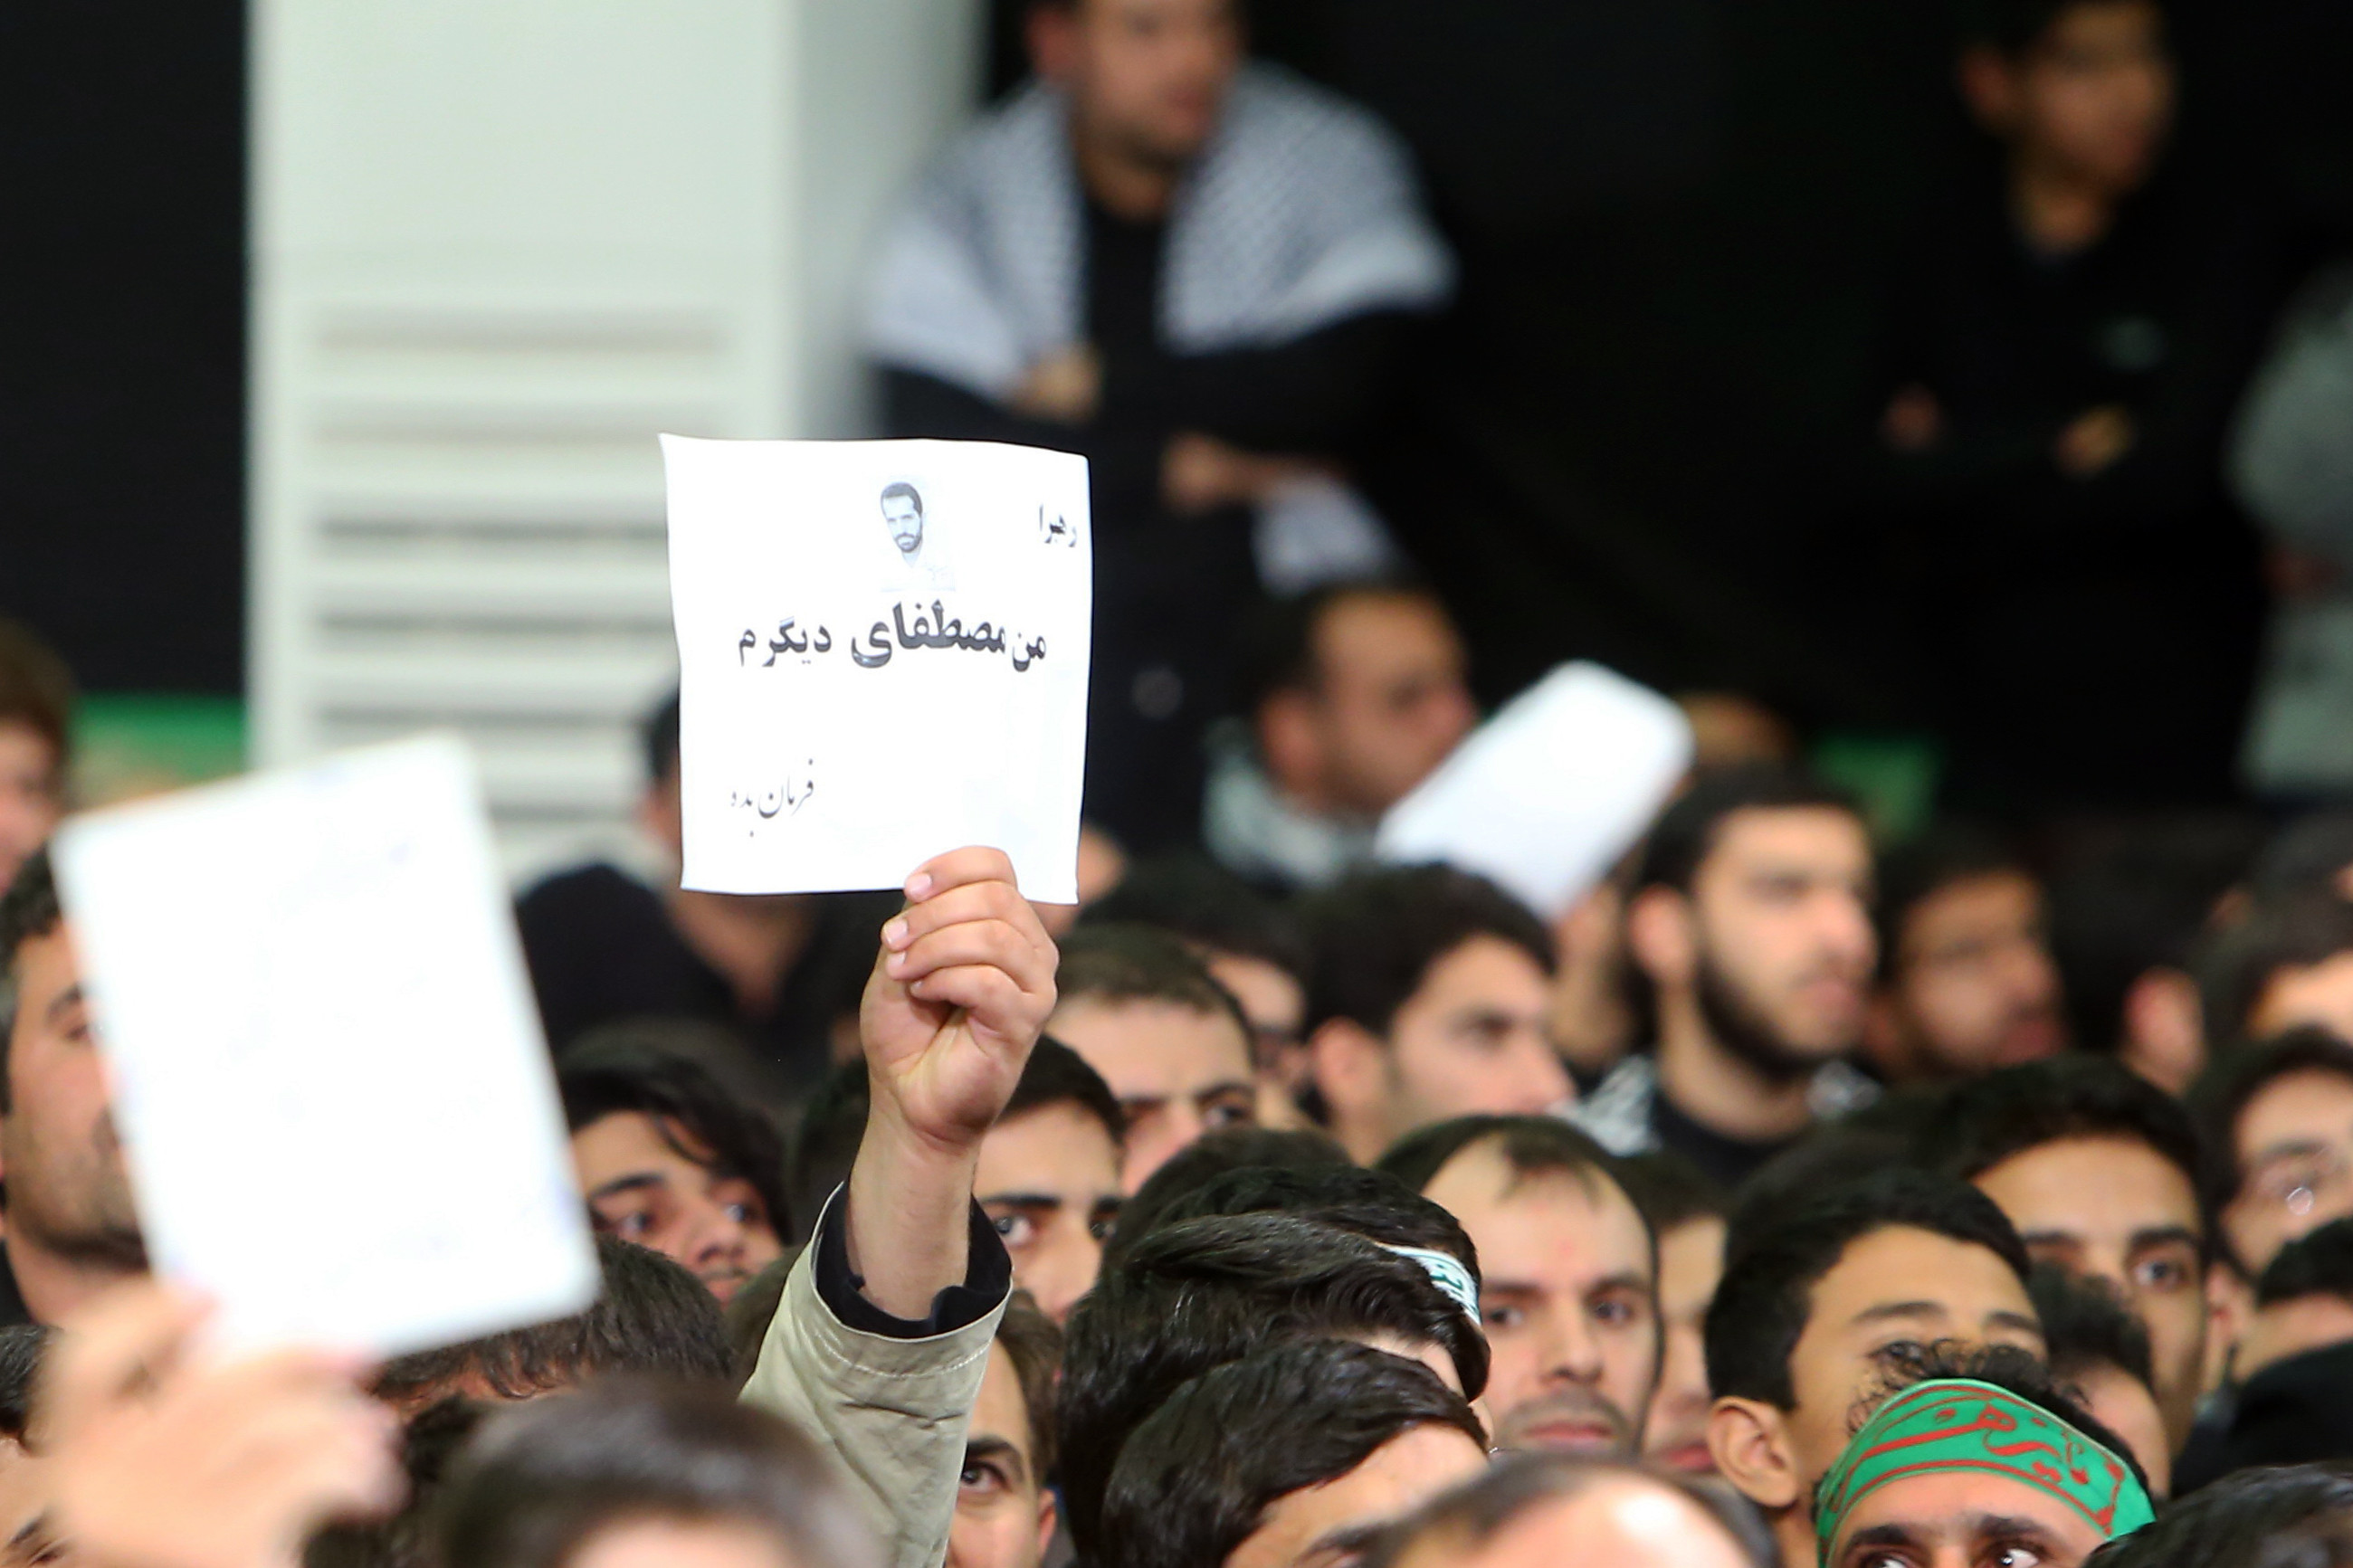 رهبرا
من مصطفای دیگرم
فرمان بده